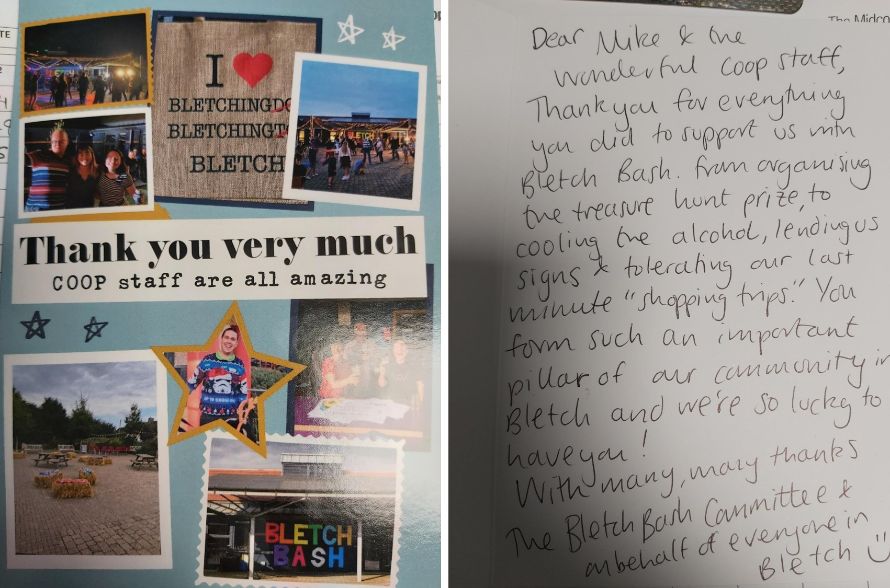 I
BLETCHINGDO
BLETCHINGT
BLETCH
BLETCH
Thank you very much
COOP staff are all amazing
BLETCH
BASH
The Midco
Dear Mike & the
wonderful coop staff,
Thank you for everything
you did to support us with
Bletch Bash. From organising
the treasure hunt prize, to
cooling the alcohol, lending us
signs & tolerating our last
minute "shopping trips." You
form such an important
pillar of our community in
Bletch and we're so lucky to
have you!
With many, many thanks
The Bletch Bash Committee &
on behalf of everyone in
Bletch